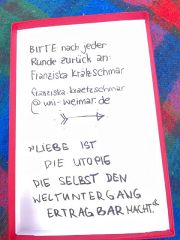 BITTE nach jeder
Runde zurück an:
Franziska Kraetzschmar
franziska.kraetzschmar
@uni-weimar.de
»LIEBE IST
DIE UTOPIE
DIE SELBST DEN
WELTUNTERGANG
ERTRAGBAR MACHT.«